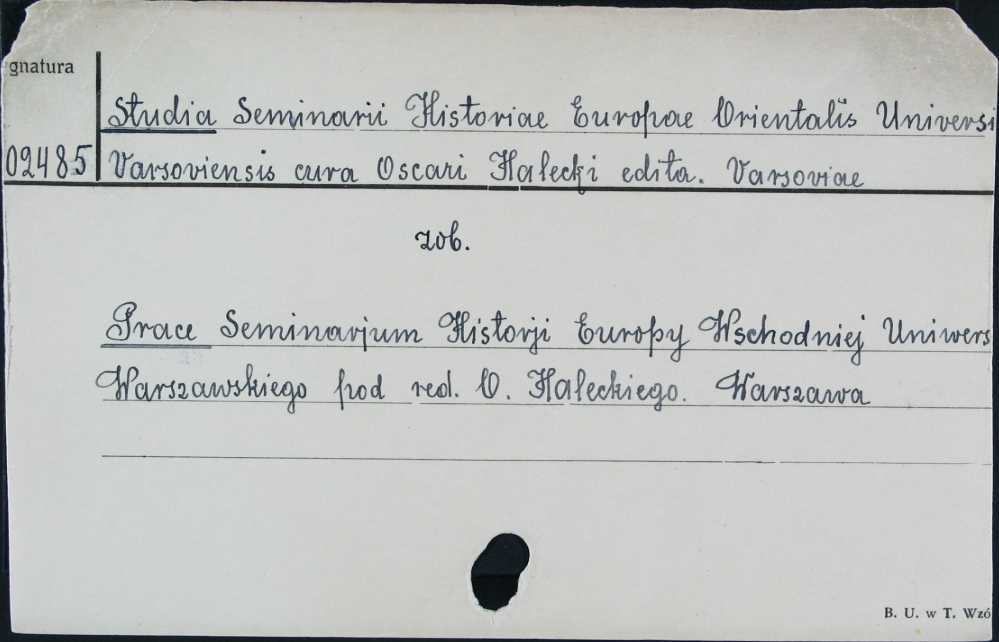 gnatura
Studia Seminarii Historiae Europae Orientalis Universi
02485 Varsoviensis cura Oscari Halecki edita. Varsoviae
zob.
Prace Seminarjum Historji Europy Wschodniej Uniwers
Warszawskiego pod red. O. Haleckiego. Warszawa
B. U. w T. Wzó